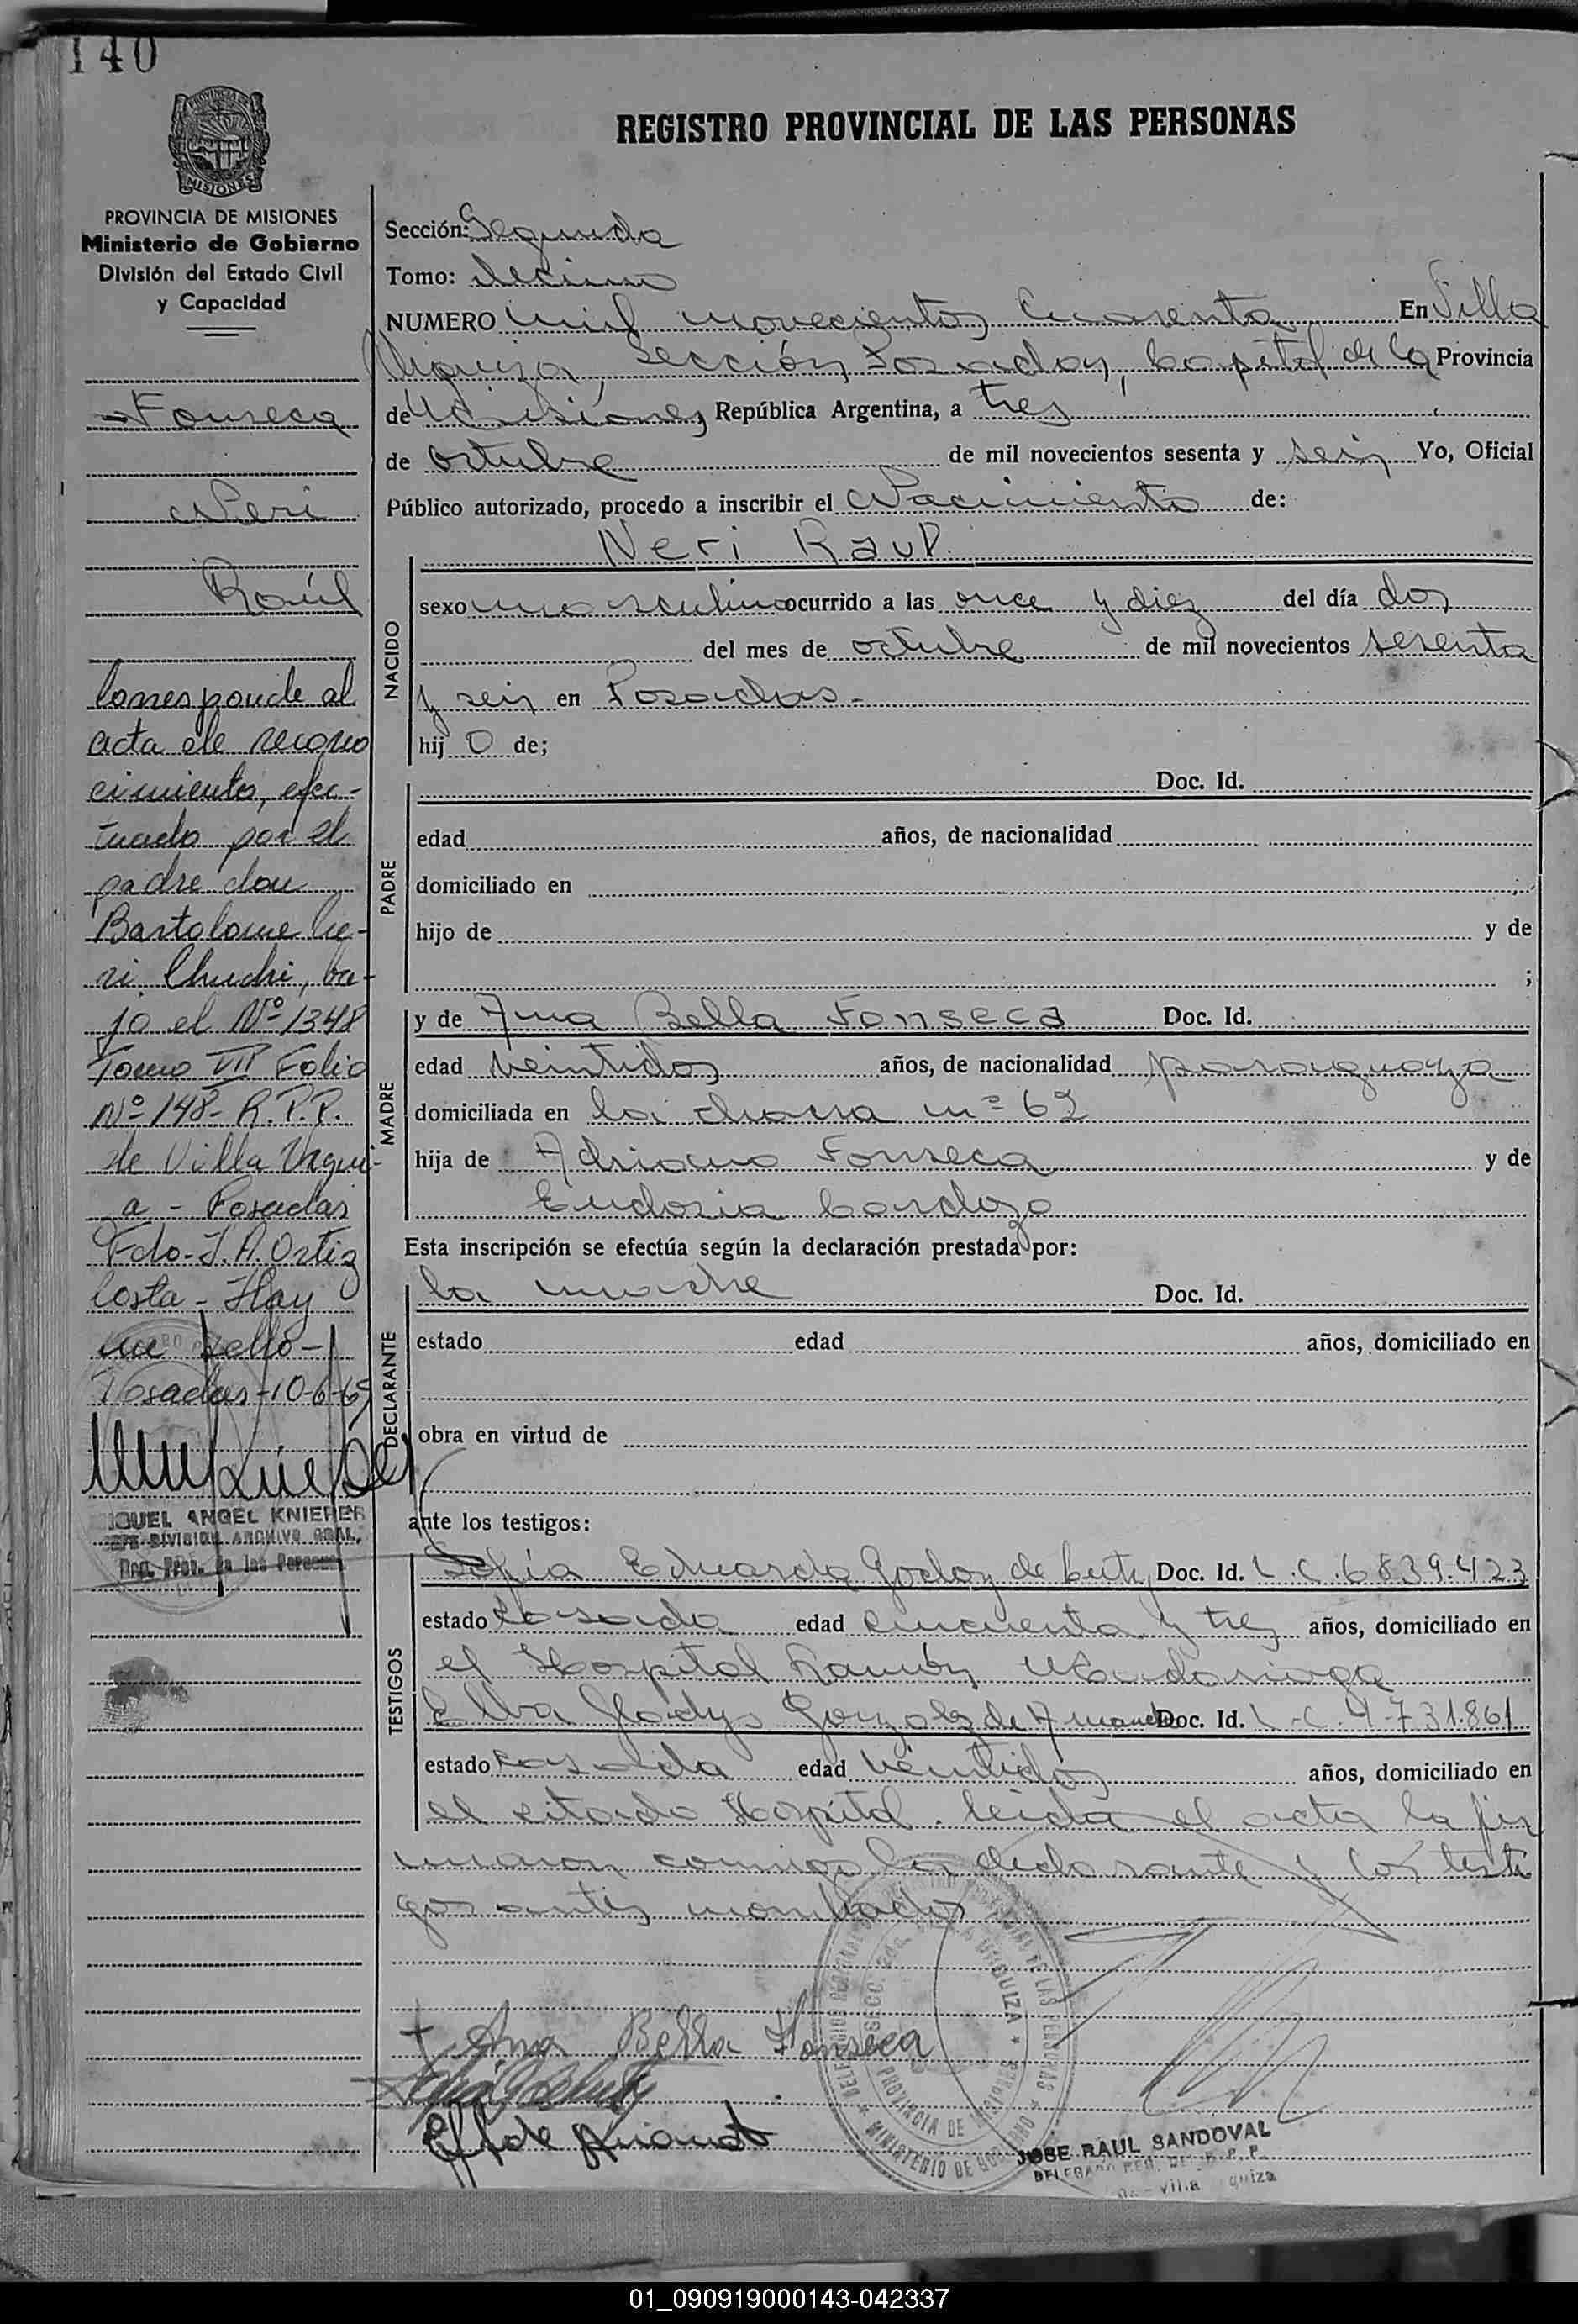 140
PROVINCIA DE MISIONES
Ministerio de Gobierno
División del Estado Civil
y Capacidad
Fonseca
Neri
Raúl
Corresponde al
acta de recono
cimiento, efec-
tuado por el
padre don
Bartolome
ri Chuchi, ba-
jo el Nº 1348
Tomo VII Folio
Nº 148- R.P.P.
de Villa Urqui-
a - Posadas
Fdo- J. A. Ortiz
Costa - Hay
un sello -
Posadas -10-6-69
MIGUEL ANGEL KNIERER
JEFE DIVISION ARCHIVO GRAL.
Reg. Prov. de las Personas
REGISTRO PROVINCIAL DE LAS PERSONAS
Sección: Segunda
Tomo: decimo
NUMERO mil novecientos cuarenta En Villa
Urquiza, Sección Posadas, Capital de la Provincia
de Misiones República Argentina, a tres
de octubre de mil novecientos sesenta y seis Yo, Oficial
Público autorizado, procedo a inscribir el Nacimiento de:
NACIDO
Neri Raul
sexo masculino ocurrido a las once y diez del día dos
del mes de octubre de mil novecientos sesenta
y seis en Posadas.-
hij o de;
PADRE
Doc. Id.
edad años, de nacionalidad
domiciliado en
hijo de y de
;
MADRE
y de Ana Bella Fonseca Doc. Id.
edad veintidos años, de nacionalidad paraguaya
domiciliada en la chacra nº 62
hija de Adriano Fonseca y de
Eudosia Cardozo
Esta inscripción se efectúa según la declaración prestada por:
DECLARANTE
la madre Doc. Id.
estado edad años, domiciliado en
obra en virtud de
ante los testigos:
TESTIGOS
Sofia Eduarda Godoy de Doc. Id. L.C. 6839.423
estado casada edad cincuenta y tres años, domiciliado en
el Hospital Ramón Madariaga
Elba Gladys Gonzalez de Doc. Id. L.C. 4731.861
estado casada edad veintidos años, domiciliado en
el citado Hospital. leida el acta la fir
maron conmigo la declarante y los testi
gos antes nombrados
Ana Bella Fonseca
JOSE RAUL SANDOVAL
01_090919000143-042337